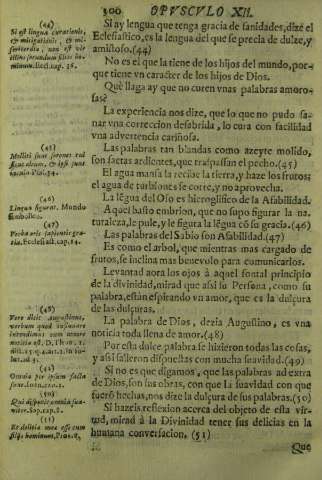 300 OPVSCVLO XII.
Si ay lengua que tenga gracia de sanidades, dize el
Eclesiastico, es la lengua del que se precia de dulze, y
amistoso. (44)
No es el que la tiene de los hijos del mundo, por-
que tiene vn caracter de los hijos de Dios.
Què llaga ay que no curen vnas palabras amoro-
sas?
La experiencia nos dize, que lo que no pudo sa-
nar vna correccion desabrida, lo cura con facilidad
vna advertencia cariñosa.
Las palabras tan blandas como azeyte molido,
son saetas ardientes, que traspassan el pecho. (45)
El agua mansa la recibe la tierra, y haze los frutos;
el agua de turbiones se corre, y no aprovecha.
La lẽgua del Oso es hieroglifico de la Afabilidad.
Aquel basto embrion, que no supo figurar la na-
turaleza, le pule, y le figura la lẽgua cõ su gracia. (46)
Las palabras del Sabio son Afabilidad. (47)
Es como el arbol, que mientras mas cargado de
frutos, se inclina mas benevolo para comunicarlos.
Levantad aora los ojos à aquel fontal principio
de la divinidad, mirad que assi su Persona, como su
palabra, estàn espirando vn amor, que es la dulçura
de las dulçuras.
La palabra de Dios, dezia Augustino, es vna
noticia toda llena de amor. (48)
Por esta dulce palabra se hizieron todas las cosas,
y assi salieron dispuestas con mucha suavidad. (49)
Si no es que digamos, que las palabras ad extra
de Dios, son sus obras, con que la suavidad con que
fuerõ hechas, nos dize la dulçura de sus palabras. (50)
Si hazeis reflexion acerca del objeto de esta vir-
tud, mirad à la Divinidad tener sus delicias en la
humana conversacion. (51)
Que
(44)
Si est lingua curationis,
& mitigationis, & mi-
sericordiæ, non est vir
illius secundum filios ho-
minum. Eccl. cap. 36.
(45)
Molliti sunt sermones eius
super oleum, & ipsi sunt
iacula. Psal. 54.
(46)
Lingua figurat. Mundo
simbolico.
(47)
Verba oris sapientis gra-
tia. Ecclesiast. cap. 10.
(48)
Vere dicit Augustinus,
verbum quod insinuare
intendimus cum amore
notitia est. D. Thom. 1.
(49)
Omnia per ipsum facta
sunt. Ioann. c. 1.
(50)
Qui disponit omnia sua-
viter. Sap. cap. 8.
(51)
Et delitiæ meæ esse cum
filijs hominum. Prov. 8.